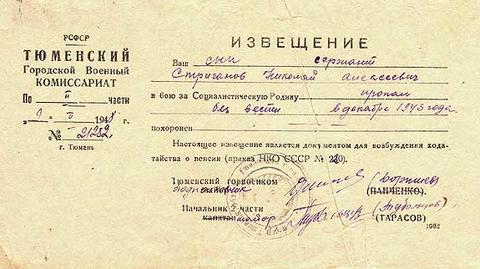 РСФСР
ТЮМЕНСКИЙ
Городской Военный
КОМИССАРИАТ
По II части
№ 21282
г. Тюмень
ИЗВЕЩЕНИЕ
Ваш сын сержант
Стриганов Николай Алексеевич
в бою за Социалистическую Родину пропал
без вести в декабре 1943 года
похоронен
Настоящее извещение является документом для возбуждения хода-
тайства о пенсии (приказ НКО СССР №
Тюменский горвоенком
подполковник
(ПАНЧЕНКО)
Начальник 2 части
капитан майор
(ТАРАСОВ)
1982